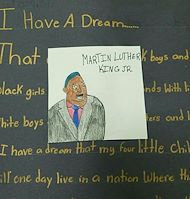 I Have A Dream.....
That
MARTIN LUTHER
KING JR
k boys and
black girls
nds with li
hite boys
ers and
I have a dream that my four little Chil
ill one day live in a nation where th